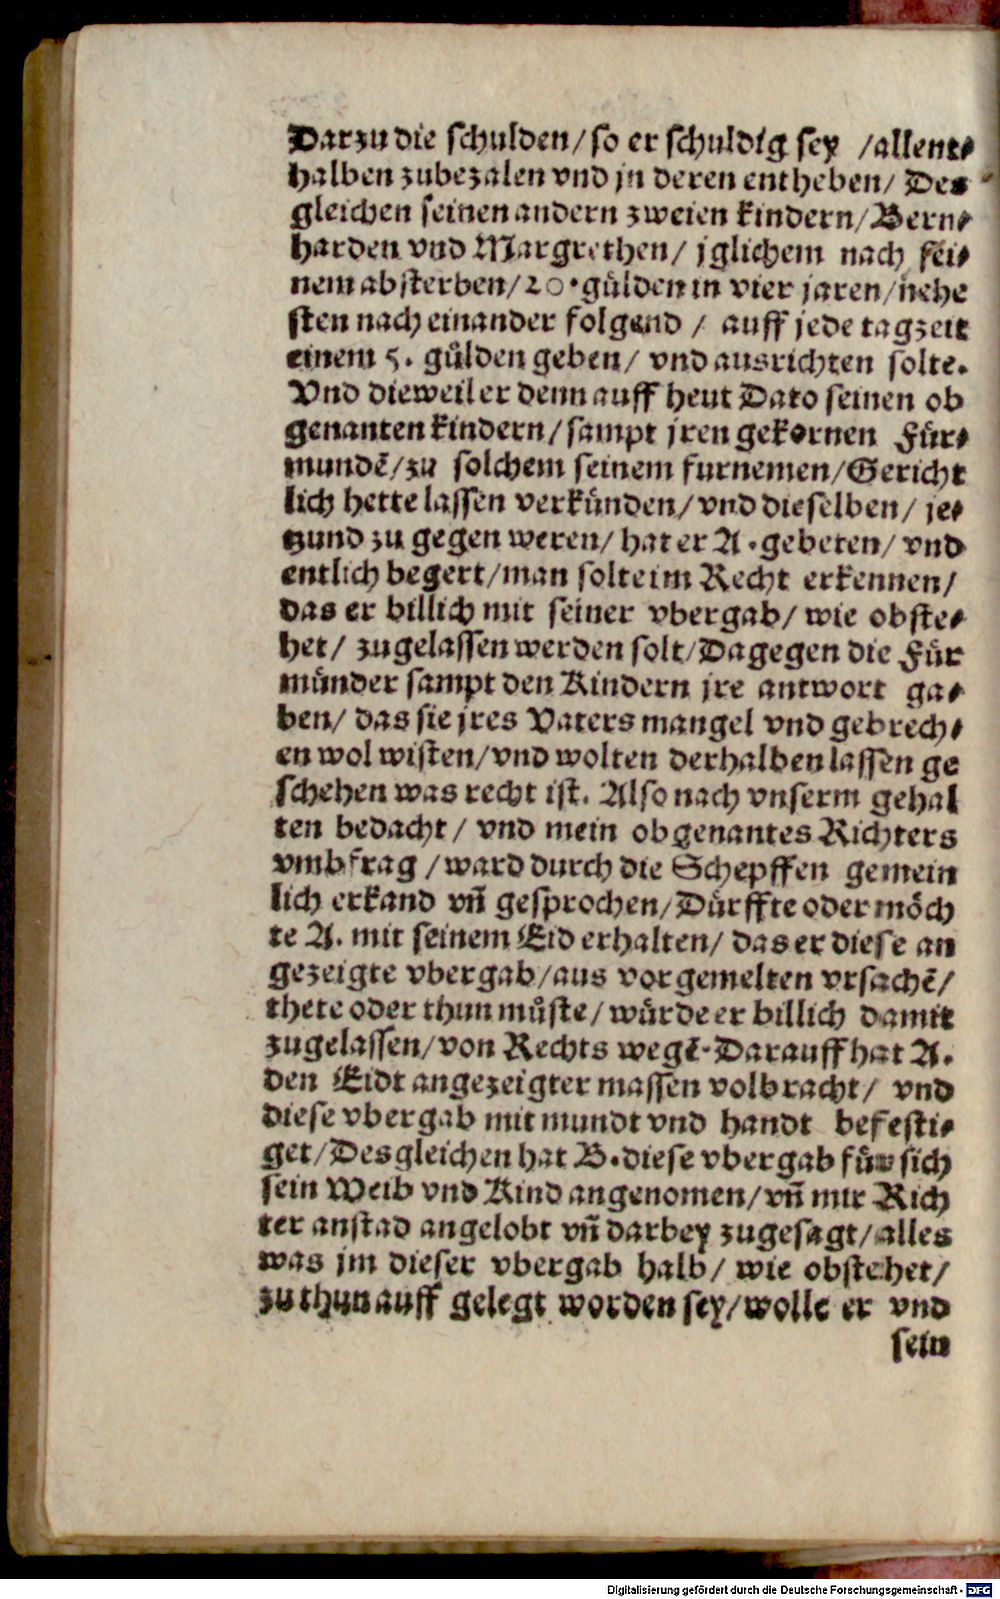 Darzu die schulden/so er schuldig sey /allent⸗
halben zubezalen vnd jn deren entheben/ Des
gleichen seinen andern zweien kindern/Bern⸗
harden vnd Margrethen/ jglichem nach sei⸗
nem absterben/20.gülden in vier jaren/nehe
sten nach einander folgend / auff jede tagzeit
einem 5. gülden geben/ vnd ausrichten solte.
Vnd dieweil er denn auff heut Dato seinen ob
genanten kindern/sampt jren gekornen Für⸗
mundē/zu solchem seinem furnemen/Gericht
lich hette lassen verkünden/vnd dieselben/ je⸗
tzund zu gegen weren/ hat er A.gebeten/ vnd
entlich begert/man solte im Recht erkennen/
das er billich mit seiner vbergab/ wie obste⸗
het/ zugelassen werden solt/Dagegen die Für
münder sampt den Kindern jre antwort ga⸗
ben/ das sie jres Vaters mangel vnd gebrech⸗
en wol wisten/vnd wolten derhalben lassen ge
schehen was recht ist. Also nach vnserm gehal
ten bedacht/ vnd mein obgenantes Richters
vmbfrag /ward durch die Schepffen gemein
lich erkand vn̄ gesprochen/Dürffte oder möch
te A. mit seinem Eid erhalten/ das er diese an
gezeigte vbergab/aus vorgemelten vrsachē/
thete oder thun müste/würde er billich damit
zugelassen/von Rechts wegē.Darauff hat A.
den Eidt angezeigter massen volbracht/ vnd
diese vbergab mit mundt vnd handt befesti⸗
get/Desgleichen hat B.diese vbergab für sich
sein Weib vnd Kind angenomen/vn̄ mir Rich
ter anstad angelobt vn̄ darbey zugesagt/alles
was jm dieser vbergab halb/ wie obstehet/
zu thun auff gelegt worden sey/wolle er vnd
sein
Digitalisierung gefördert durch die Deutsche Forschungsgemeinschaft - DFG